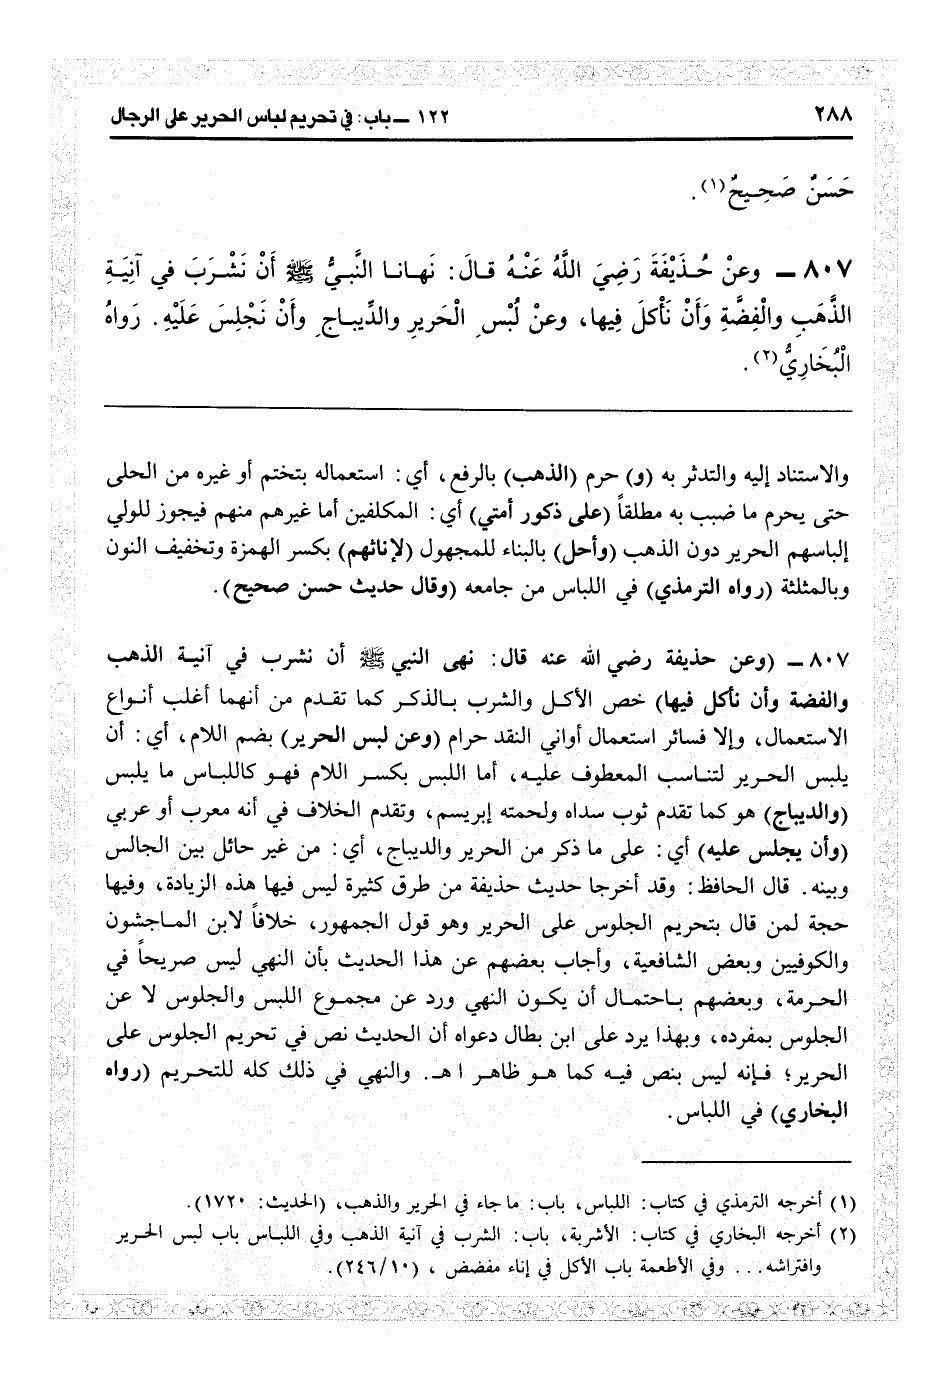 ٢٨٨ ١٢٢ ـ باب: في تحريم لباس الحرير على الرجال
حَسَنٌ صَحِيحٌ(١).
٨٠٧ ـ وعنْ حُذَيْفَةَ رَضِيَ اللَّهُ عَنْهُ قالَ: نَهانا النَّبيُّ ﷺ أَنْ نَشْرَبَ في آنِيَةِ
الذَّهَبِ والْفِضَّةِ وَأَنْ نَأْكلَ فِيها، وعنْ لُبْسِ الْحَريرِ والدِّيباجِ وأَنْ نَجْلِسَ عَلَيْهِ. رَواهُ
الْبُخَارِيُّ(٢).
والاستناد إليه والتدثر به (و) حرم (الذهب) بالرفع، أي: استعماله بتختم أو غيره من الحلى
حتى يحرم ما ضبب به مطلقاً (على ذكور أمتي) أي: المكلفين أما غيرهم منهم فيجوز للولي
إلباسهم الحرير دون الذهب (وأحل) بالبناء للمجهول (لإناثهم) بكسر الهمزة وتخفيف النون
وبالمثلثة (رواه الترمذي) في اللباس من جامعه (وقال حديث حسن صحيح).
٨٠٧ ـ (وعن حذيفة رضي الله عنه قال: نهى النبي ﷺ أن نشرب في آنية الذهب
والفضة وأن نأكل فيها) خص الأكل والشرب بالذكر كما تقدم من أنهما أغلب أنواع
الاستعمال، وإلا فسائر استعمال أواني النقد حرام (وعن لبس الحرير) بضم اللام، أي: أن
يلبس الحرير لتناسب المعطوف عليه، أما اللبس بكسر اللام فهو كاللباس ما يلبس
(والديباج) هو كما تقدم ثوب سداه ولحمته إبريسم، وتقدم الخلاف في أنه معرب أو عربي
(وأن يجلس عليه) أي: على ما ذكر من الحرير والديباج، أي: من غير حائل بين الجالس
وبينه. قال الحافظ: وقد أخرجا حديث حذيفة من طرق كثيرة ليس فيها هذه الزيادة، وفيها
حجة لمن قال بتحريم الجلوس على الحرير وهو قول الجمهور، خلافاً لابن الماجشون
والكوفيين وبعض الشافعية، وأجاب بعضهم عن هذا الحديث بأن النهي ليس صريحاً في
الحرمة، وبعضهم باحتمال أن يكون النهي ورد عن مجموع اللبس والجلوس لا عن
الجلوس بمفرده، وبهذا يرد على ابن بطال دعواه أن الحديث نص في تحريم الجلوس على
الحرير؛ فإنه ليس بنص فيه كما هو ظاهر ا هـ. والنهي في ذلك كله للتحريم (رواه
البخاري) في اللباس.
(١) أخرجه الترمذي في كتاب: اللباس، باب: ما جاء في الحرير والذهب، (الحديث: ١٧٢٠).
(٢) أخرجه البخاري في كتاب: الأشربة، باب: الشرب في آنية الذهب وفي اللباس باب لبس الحرير
وافتراشه... وفي الأطعمة باب الأكل في إناء مفضض ، (٢٤٦/١٠).